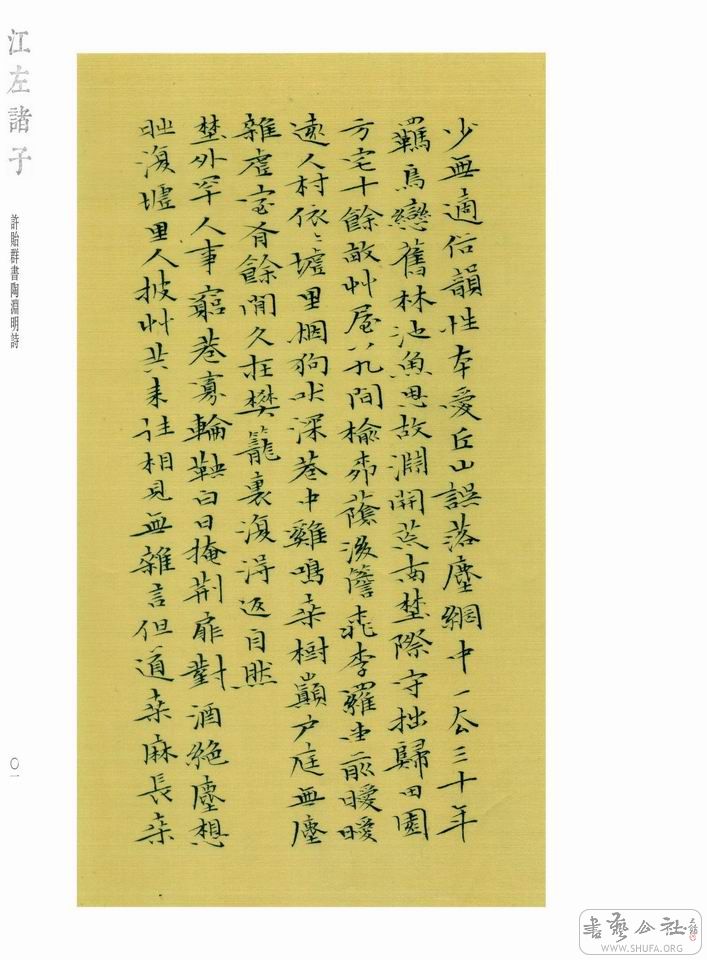 少無適俗韻性本愛丘山誤落塵網中一去三十年
羈鳥戀舊林池魚思故淵開荒南埜際守拙歸田園
方宅十餘畝艸屋八九間榆柳蔭後簷桃李羅堂前曖曖
遠人村依〻墟里烟狗吠深巷中雞鳴桑樹巔户庭無塵
雜虛室有餘閒久在樊籠裏復得返自然
埜外罕人事窮巷寡輪鞅白日掩荆扉對酒絕塵想
時復墟里人披艸共來往相見無雜言但道桑麻長桑
江左諸子
許貽群書陶淵明詩
〇一
書藝公社
WWW.SHUFA.ORG